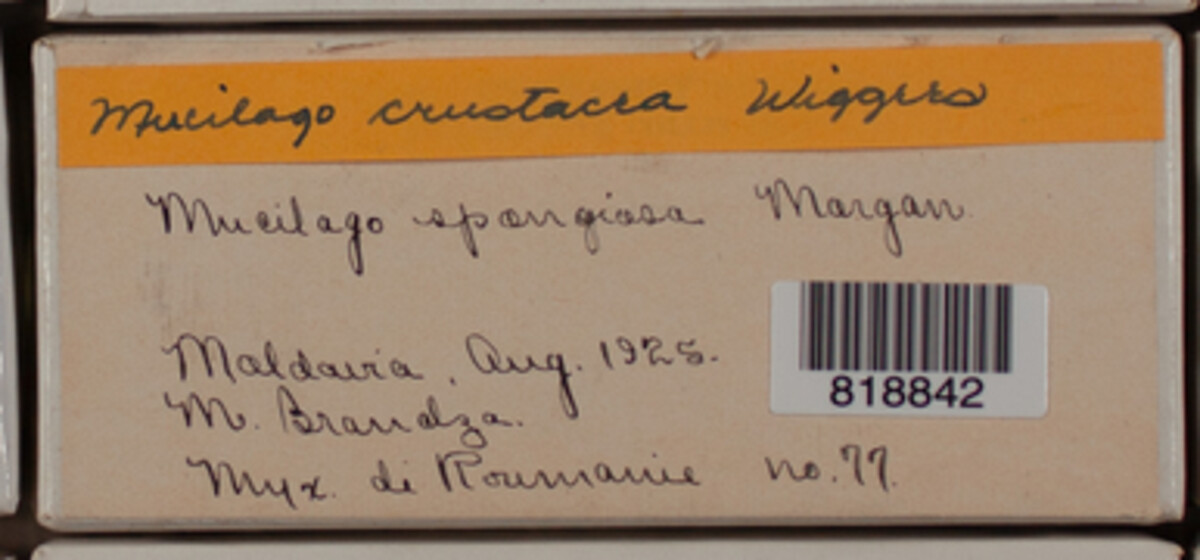 Mucilago crustacea Wiggers
Mucilago spongiosa Morgan
Moldavia, Aug. 1925.
M. Brandza.
Myx. di Roumanie no. 77.
818842